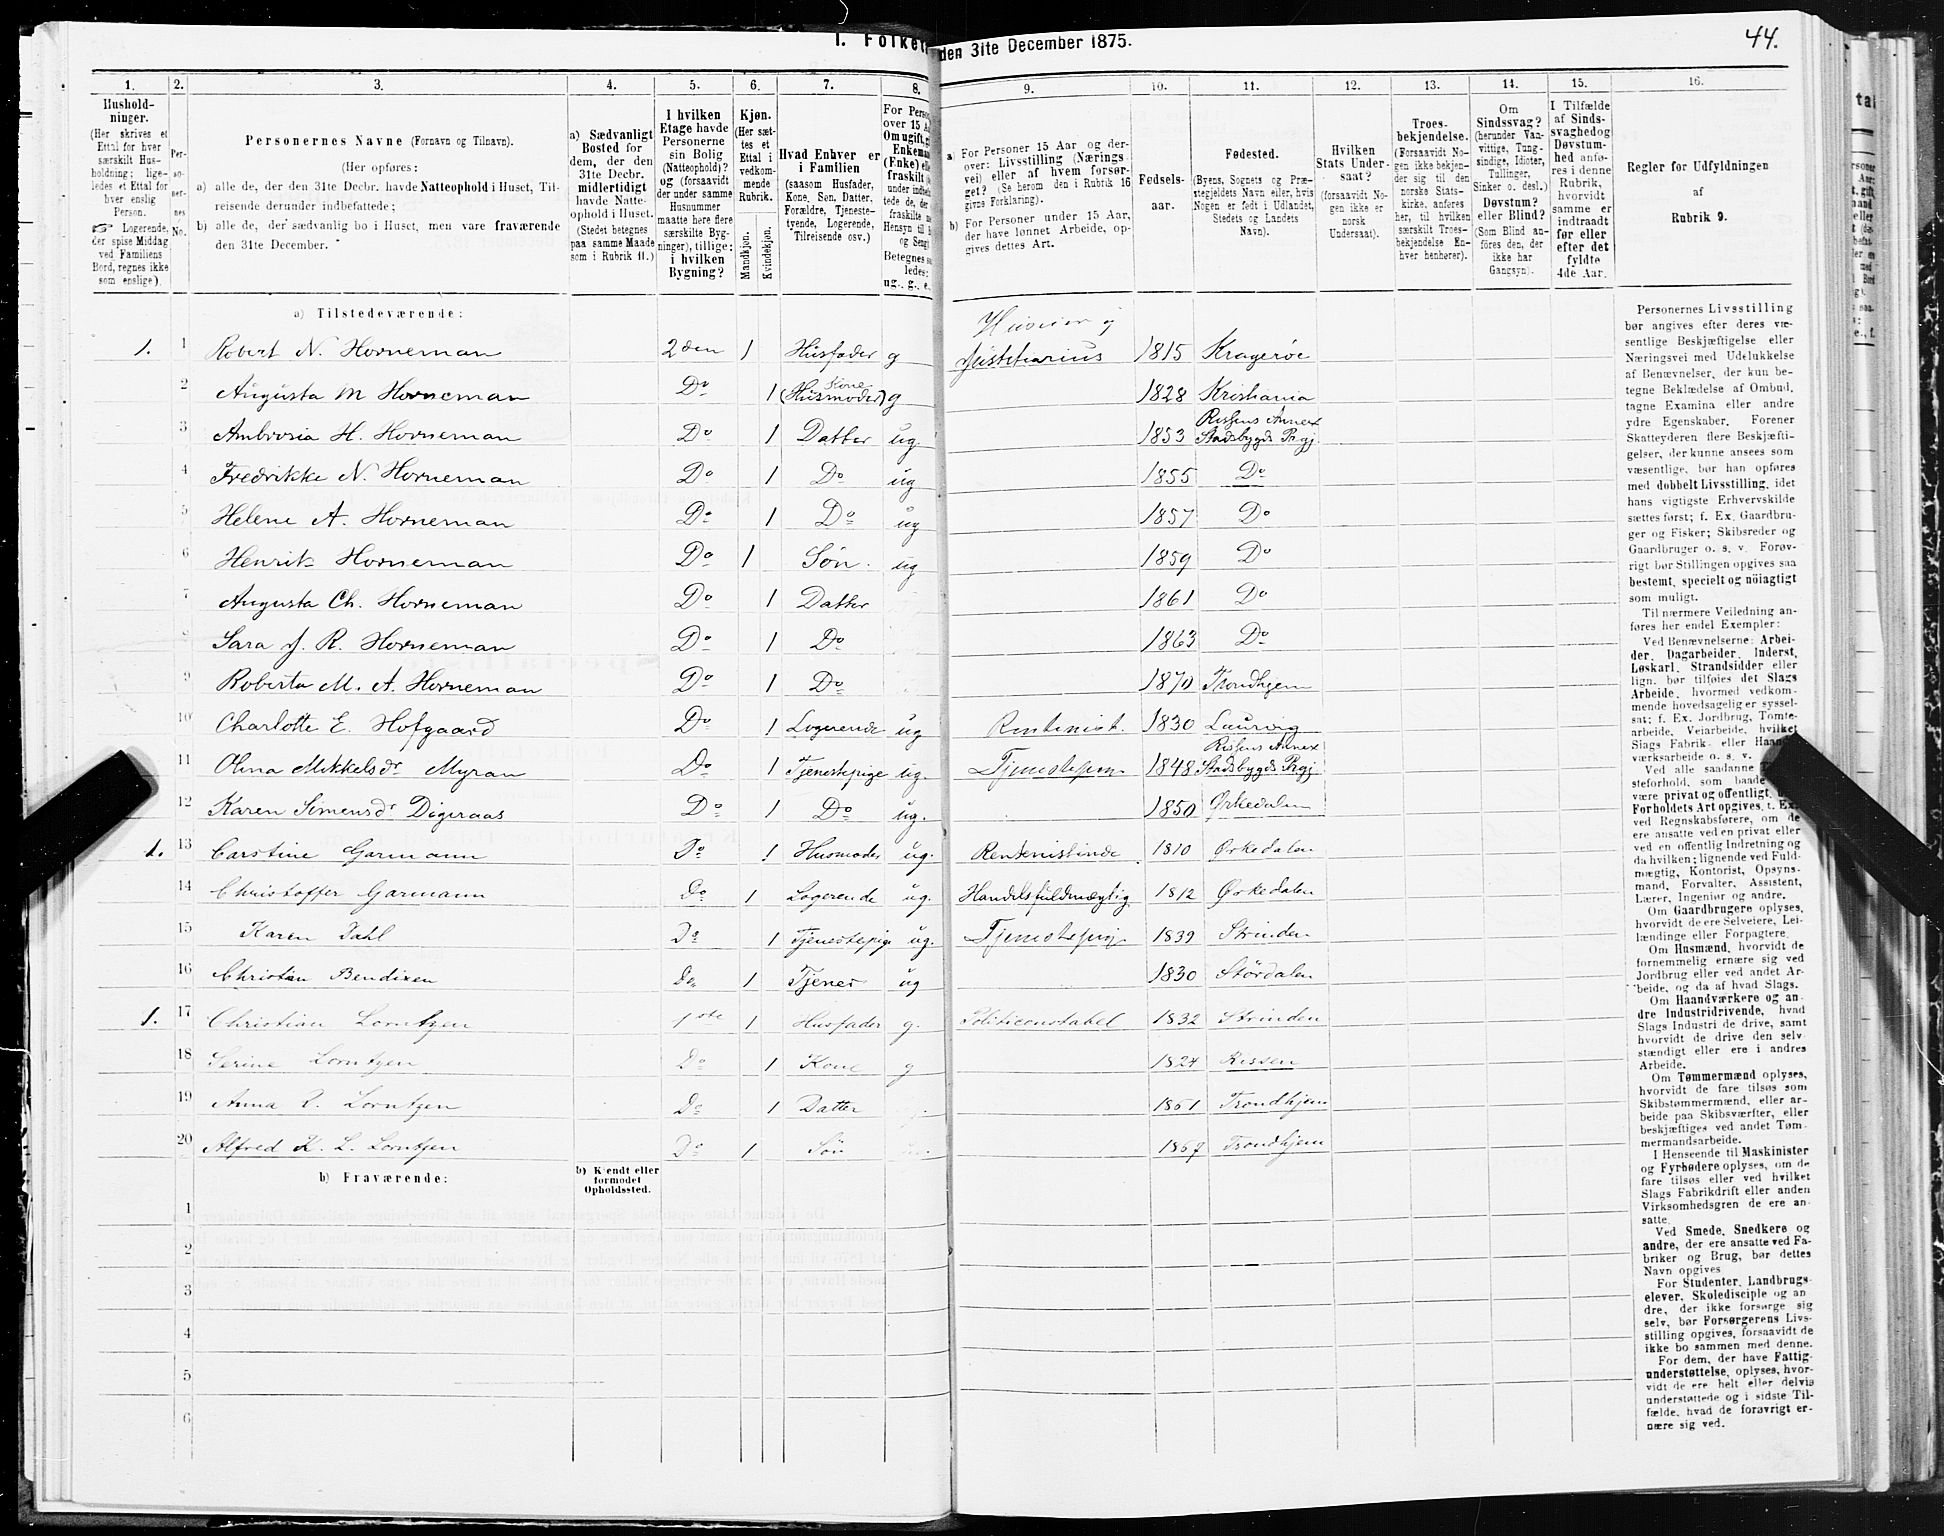 I. Folket den 31te December 1875.
44.
1. 2. 3. 4. 5. 6. 7. 8. 9. 10. 11. 12. 13. 14. 15. 16.
Hushold-
ninger.
(Her skrives et
Ettal for hver
særskilt Hus-
holdning; lige-
ledes et Ettal for
hver enslig
Person.
☞ Logerende,
der spise Middag
ved Familiens
Bord, regnes ikke
som enslige).
Per-
so-
ner-
nes
No.
Personernes Navne (Fornavn og Tilnavn).
(Her opføres:
a) alle de, der den 31te Decbr. havde Natteophold i Huset, Til-
reisende derunder indbefattede;
b) alle de, der sædvanlig bo i Huset, men vare fraværende
den 31te December.
a) Sædvanligt
Bosted for
dem, der den
31te Decbr.
midlertidigt
havde Natte-
ophold i Huset.
(Stedet betegnes
paa samme Maade
som i Rubrik 11.)
I hvilken
Etage havde
Personerne
sin Bolig
(Natteophold)?
og (forsaavidt
der under samme
Husnummer
maatte here flere
særskilte Byg-
ninger), tillige:
i hvilken
Bygning?
Kjøn.
(Her sæt-
tes et
Ettal i
vedkom-
mende
Rubrik.
Mandkjøn.
Kvindekjøn.
Hvad Enhver er
i Familien
(saasom Husfader,
Kone, Søn, Datter,
Forældre, Tjeneste-
tyende, Logerende,
Tilreisende osv.)
For Person
over 15 A
Om ugift, g
Enkema
(Enke) e
fraskilt
under indbe
tede de, d
fraskilte
Hensyn til
og Seng
Betegnes s
ledes:
ug., g., e.,
a) For Personer 15 Aar og der-
over: Livsstilling (Nærings
vei) eller af hvem forsør-
get? (Se herom den i Rubrik 16
givne Forklaring).
b) For Personer under 15 Aar,
der have lønnet Arbeide, op-
gives dettes Art.
Fødsels-
aar.
Fødested.
(Byens, Sognets og Præ-
stegjeldets Navn eller, hvis
Nogen er født i Udlandet,
Stedets og Landets
Navn).
Hvilken
Stats Under-
saat?
(forsaavidt No-
gen ikke er
norsk
Undersaat).
Troes-
bekjendelse.
(Forsaavidt No-
gen ikke bekjen-
der sig til den
norske Stats-
kirke, anføres
her, til hvilken
særskilt Troes-
bekjendelse En-
hver henhører).
Om
Sindssvag?
(herunder Van-
vittige, Tung-
sindige, Idioter,
Tullinger,
Sinker o. desl.)
Døvstum?
eller Blind?
(Som Blind an-
føres den, der
ikke har
Gangsyn).
I Tilfælde
af Sinds-
svaghedog
Døvstum-
hed anfø-
res i denne
Rubrik,
hvorvidt
samme er
indtraadt
før eller
efter det
fyldte
4de Aar.
Regler for Udfyldningen
af
Rubrik 9.
a) Tilstedeværende:
Huseier og
1. 1 Robert N. Horneman 2den 1 Husfader g Justitiarius 1815 Kragerøe
Kone
2 Augusta M Horneman Do 1 (Husmoder) g 1828 Kristiania
Rissens Annex
3 Ambrosia H. Horneman Do 1 Datter ug. 1853 Stadsbygds Prgj
4 Fredrikke N. Horneman Do 1 Do ug 1855 Do
5 Helene A. Horneman Do 1 Do ug 1857 Do
6 Henrik Horneman Do 1 Søn. ug 1859 Do
7 Augusta Ch. Horneman Do 1 Datter 1861 Do
8 Sara J. R. Horneman Do 1 Do 1863 Do
9 Roberta M. A. Horneman Do 1 Do 1870 Trondhjem
10 Charlotte E. Hofgaard Do 1 Logerende ug Rentenist. 1830 Laurvig
Rissens Annex
11 Olina Mikkelsdr Myran Do 1 Tjenestepige ug. Tjenestepige 1848 Stadsbygds Prgj
12 Karen Simensdr Digeraas Do 1 Do ug. 1850 Ørkedalen
1. 13 Carstine Garmann Do 1 Husmoder ug. Rentenistinde 1810 Ørkedalen
14 Christoffer Garmann Do 1 Logerende ug. Handelsfuldmægtig 1812 Ørkedalen
15 Karen Dahl Do 1 Tjenestepige ug. Tjenestepige 1839 Strinden
16 Christian Bendixen Do 1 Tjener ug 1830 Størdalen
1. 17 Christian Lorntzen 1ste 1 Husfader g. Politiconstabel 1832 Strinden
18 Serine Lorntzen Do 1 Kone g 1824 Rissen
19 Anna R. Lorntzen Do 1 Datter 1861 Trondhjem
20 Alfred K. L. Lorntzen Do 1 Søn 1867 Trondhjem
b) Fraværende:
b) Kjendt eller
formodet
Opholdssted.
1
2
3
4
5
6
Personernes Livsstilling
bør angives efter deres væ-
sentlige Beskjæftigelse eller
Næringsvei med Udelukkelse
af Benævnelser, der kun be-
tegne Beklædelse af Ombud,
tagne Examina eller andre
ydre Egenskaber. Forener
Skatteyderen flere Beskjæfti-
gelser, der kunne ansees som
væsentlige, bør han opføres
med dobbelt Livsstilling, idet
hans vigtigste Erhvervskilde
sættes først; f. Ex. Gaardbru-
ger og Fisker; Skibsreder og
Gaardbruger o. s. v. Forøv-
rigt bør Stillingen opgives saa
bestemt, specielt og nöiagtigt
som muligt.
Til nærmere Veiledning an-
føres her endel Exempler:
Ved Benævnelserne: Arbei-
der, Dagarbeider, Inderst,
Løskarl, Strandsidder eller
lign. bør tilføies det Slags
Arbeide, hvormed vedkom-
mende hovedsagelig er syssel-
sat; f. Ex. Jordbrug, Tomte-
arbeide, Veiarbeide, hvilket
Slags Fabrik- eller Haand
værksarbeide o. s. v.
Ved alle saadanne
steforhold, som baade
være privat og offentligt,
Forholdets Art opgives, t. Ex.
ved Regnskabsførere, om de
ere ansatte ved en privat eller
ved en offentlig Indretning og
da hvilken; lignende ved Fuld-
mægtig, Kontorist, Opsyns-
mand, Forvalter, Assistent,
Lærer, Ingeniør og andre.
Om Gaardbrugere oplyses,
hvorvidt de ere Selveiere, Lei-
lændinge eller Forpagtere.
Om Husmænd, hvorvidt de
fornemmelig ernære sig ved
Jordbrug eller ved andet Ar-
beide, og da af hvad Slags.
Om Haandværkere og an-
dre Industridrivende, hvad
Slags Industri de drive, samt
hvorvidt de drive den selv-
stændigt eller ere i andres
Arbeide.
Om Tømmermænd oplyses,
hvorvidt de fare tilsøs som
Skibstømmermænd, eller ar-
beide paa Skibsværfter, eller
beskjæftiges ved andet Tøm-
mermandsarbeide.
I Henseende til Maskinister
og Fyrbødere oplyses, om de
fare tilsøs eller ved hvilket
Slags Fabrikdrift eller anden
Virksomhedsgren de ere an-
satte.
Ved Smede, Snedkere og
andre, der ere ansatte ved Fa-
briker og Brug, bør dettes
Navn opgives
For Studenter, Landbrugs-
elever, Skoledisciple og an
dre, der ikke forsørge sig
selv, bør Forsørgerens Livs-
stilling opgives, forsaavidt de
ikke bo sammen med denne.
For dem, der have Fattig-
understøttelse, oplyses, hvor-
vidt de ere helt eller delvis
understøttede og i sidste Til-
fælde, hvad de forøvrigt er-
nære sig ved.